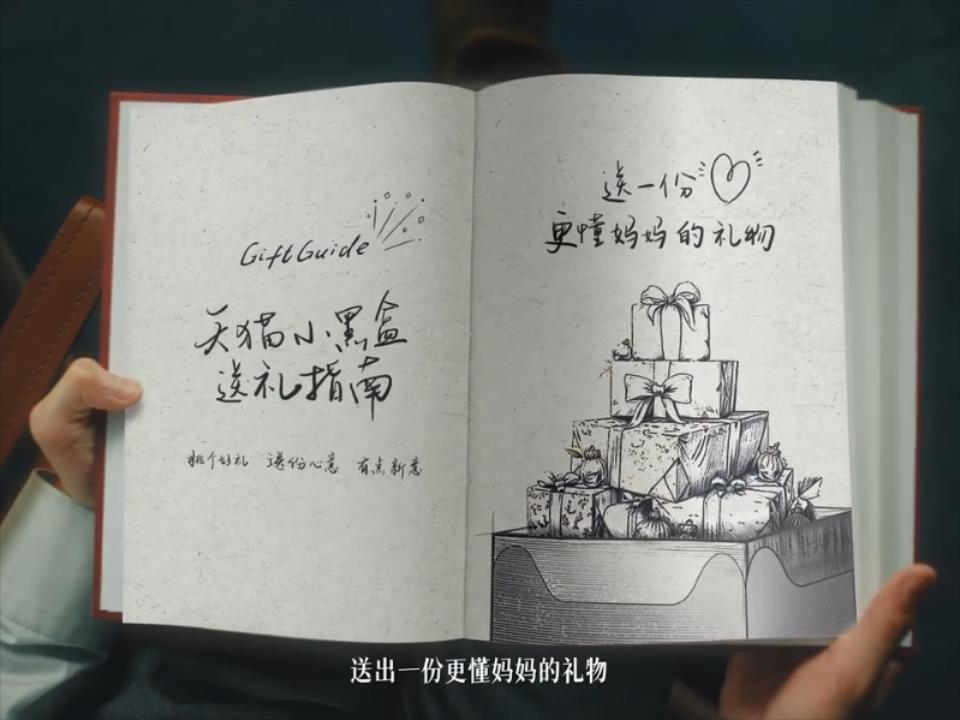 GiftGuide
天猫小黑盒
送礼指南
挑个好礼 送份心意 有点新意
送一份
更懂妈妈的礼物
送出一份更懂妈妈的礼物